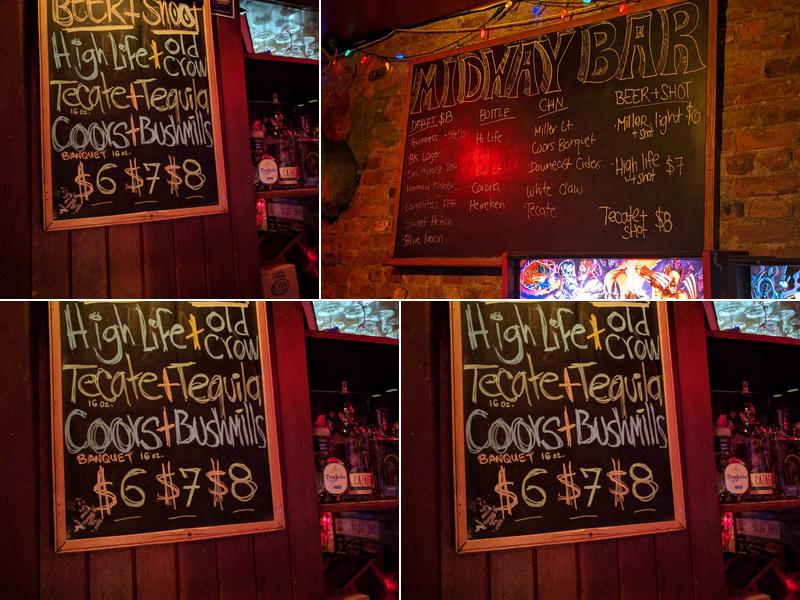 BEER + Shot
High Life + old
crow
Tecate + Tequila
16 oz.
Coors + Bushmills
BANQUET 16 oz.
$6 $7 $8
MIDWAY BAR
DRAFT $8
Guinness · Stella
BK Lager
Hermand Pilsner
Lagunitas IPA
· Sweet Action
· Blue Moon
BOTTLE
Hi Life
Bud Lt
Corona
Heineken
CAN
Miller Lt.
Coors Banquet
Downeast Cider
White Claw
Tecate
BEER + SHOT
· Miller light $6
+ shot
· High life $7
+ shot
Tecate + $8
shot
High Life + old
crow
Tecate + Tequila
16 oz.
Coors + Bushmills
BANQUET 16 oz.
$6 $7 $8
Don Julio
CAZAD
High Life + old
crow
Tecate + Tequila
16 oz.
Coors + Bushmills
BANQUET 16 oz.
$6 $7 $8
Don Julio
CAZA